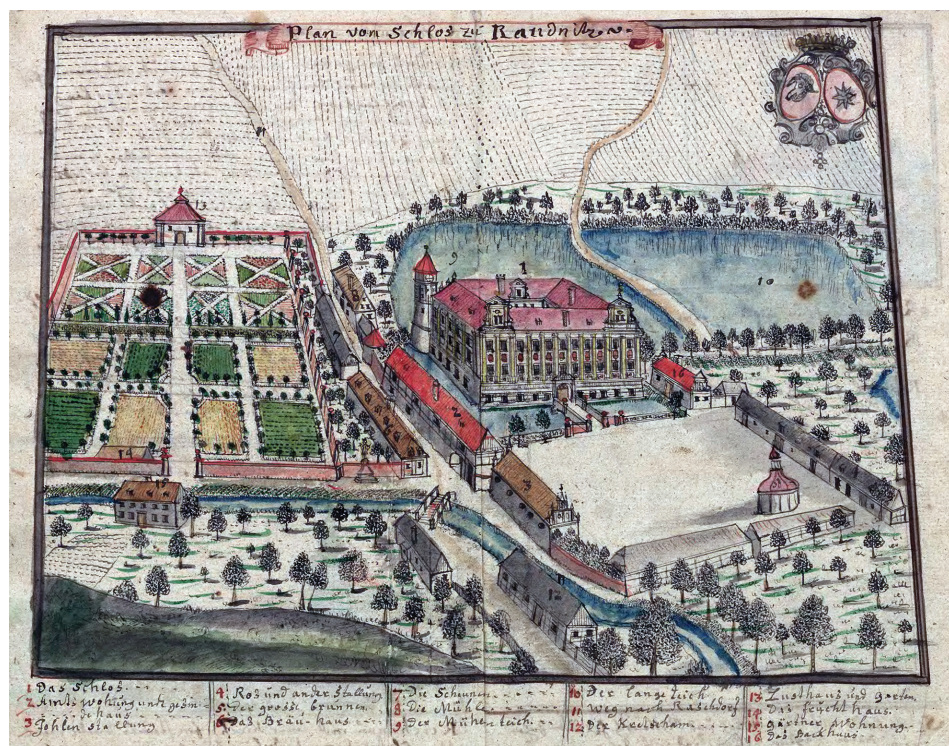 Plan vom Schlos zu Raudnitz
1 Das Schlos.
2 Amts wohnung und gesin-
dehaus.
3 Fohlen stallung
4 Ros und ander Stallung
5 Der grosse brunnen.
6 Das Bräu-haus
7 Die Scheunen
8 Die Mühle
9 Der Mühlenteich.
10 Der lange teich
11 weg nach Raschdorf
12 Der Kretscham
13 Lusthaus und garten
14 Das feucht haus
15 gärtner Wohnung
16 Das Backhaus